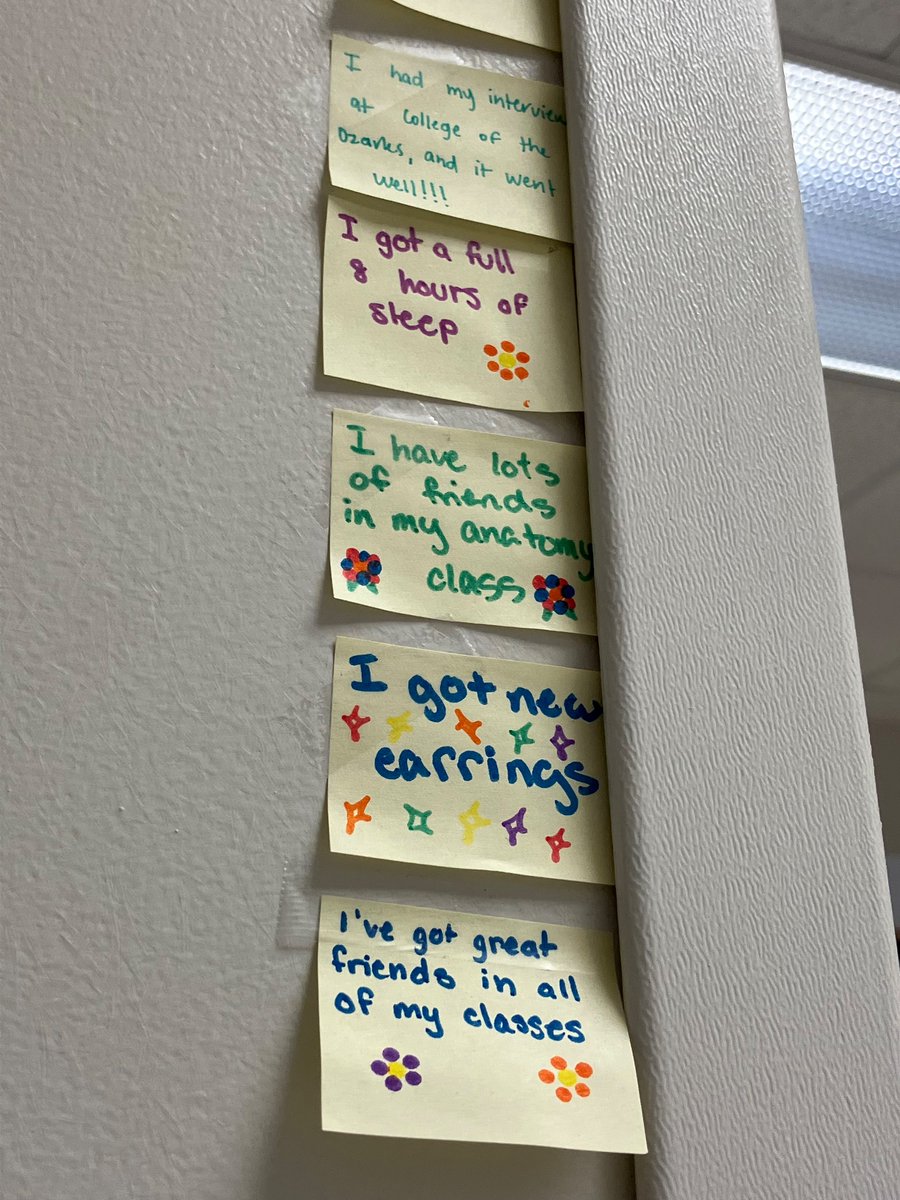 I had my interview
at College of the
Ozarks, and it went
well!!!
I got a full
8 hours of
sleep
I have lots
of friends
in my anatomy
class
I got new
earrings
I've got great
friends in all
of my classes